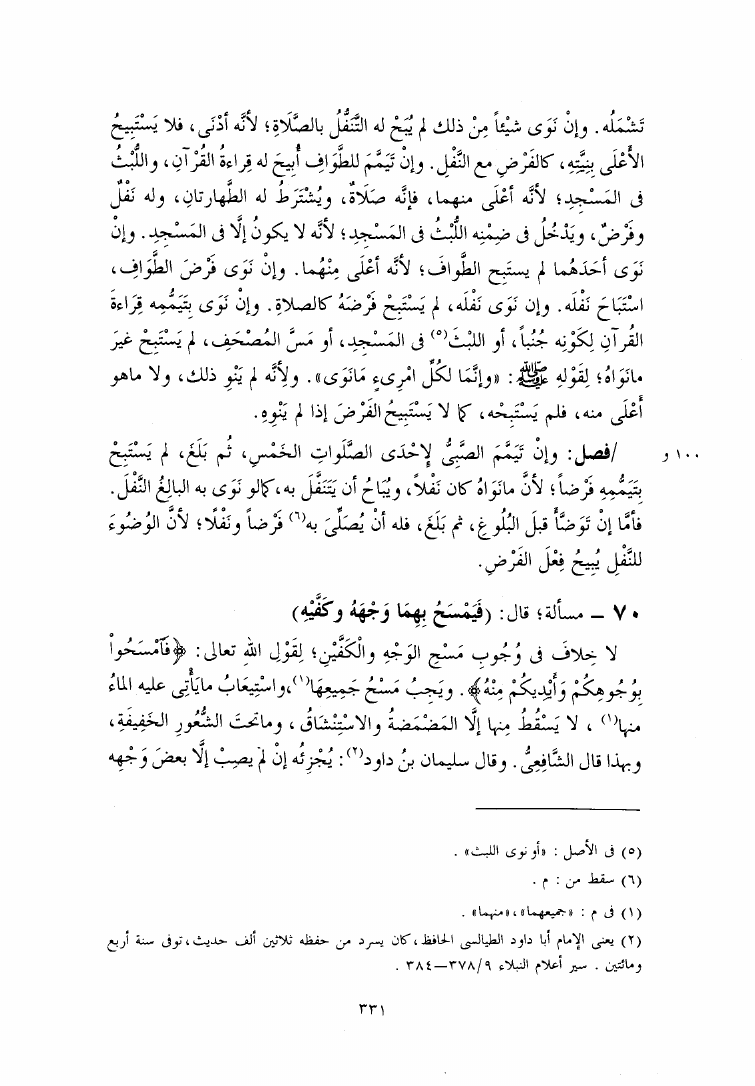 تَشْمَلُه. وإنْ نَوَى شيْئاً مِنْ ذلك لم يُبَحْ له التَّنَفُّلُ بالصَّلَاةِ؛ لأنَّه أدْنَى، فلا يَسْتَبِيحُ
الأعْلَى بِنِيَّتِه، كالفَرْضِ مع النَّفْلِ. وإن تَيَمَّمَ للطَّوَافِ أُبِيحَ له قِراءةُ القُرْآنِ، واللُّبْثُ
فى المَسْجدِ؛ لأنَّه أعْلَى منهما، فإنَّه صَلَاةٌ، ويُشْتَرَطُ له الطَّهارتانِ، وله نَفْلٌ
وفَرْضٌ، ويَدْخُلُ فى ضِمْنِه اللُّبْثُ فى المَسْجدِ؛ لأنَّه لا يكونُ إلَّا فى المَسْجدِ. وإن
نَوَى أحَدَهُما لم يستَبِحِ الطَّوافَ؛ لأنَّه أعْلَى مِنْهُما. وإنْ نَوَى فَرْضَ الطَّوَافِ،
اسْتَبَاحَ نَفْلَه. وإن نَوَى نَفْلَه، لم يَسْتَبِحْ فَرْضَهُ كالصلاةِ. وإنْ نَوَى بِتَيَمُّمِه قِرَاءةَ
القُرآنِ لِكَوْنِه جُنُباً، أو اللبْثَ(٥) فى المَسْجدِ، أو مَسَّ المُصْحَفِ، لم يَسْتَبِحْ غيرَ
مانَوَاهُ؛ لِقَوْلِه ﷺ: «وإنَّمَا لكُلِّ امْرِىءٍ مَانَوَى». ولأنَّه لم يَنْوِ ذلك، ولا ماهو
أعْلَى منه، فلم يَسْتَبِحْه، كما لا يَسْتَبِيحُ الفَرْضَ إذا لم يَنْوِه.
١٠٠ و /فصل: وإنْ تَيَمَّمَ الصَّبِىُّ لإِحْدَى الصَّلَواتِ الخَمْسِ، ثُم بَلَغَ، لم يَسْتَبِحْ
بِتَيَمُّمِه فَرْضاً؛ لأنَّ مانَوَاهُ كان نَفْلاً، ويُبَاحُ أن يَتَنَفَّلَ به، كالو نَوَى به البالِغُ النَّفْلَ.
فأمَّا إنْ تَوَضَّأَ قبلَ البُلُوغِ، ثم بَلَغَ، فله أنْ يُصَلِّىَ به(٦) فَرْضاً ونَفْلًا؛ لأنَّ الوُضُوءَ
للنَّفْلِ يُبِيحُ فِعْلَ الفَرْضِ.
٧٠ – مسألة؛ قال: (فَيَمْسَحُ بِهِمَا وَجْهَهُ وكَفَّيْهِ)
لا خِلافَ فى وُجُوبِ مَسْحِ الوَجْهِ والْكَفَّيْنِ؛ لِقَوْلِ اللهِ تعالى: ﴿فَآمْسَحُواْ
بِوُجُوهِكُمْ وَأَيْدِيكُمْ مِنْهُ﴾. ويَجِبُ مَسْحُ جَمِيعِهَا(١)، واسْتِيعَابُ مايَأْتِى عليه الماءُ
منها(١)، لا يَسْقُطُ مِنها إلَّا المَضْمَضةُ والاسْتِنْشَاقُ، وماتحتَ الشُّعُورِ الخَفِيفَةِ،
وبهذا قال الشَّافِعِىُّ. وقال سليمان بنُ داود(٢): يُجْزِئُه إنْ لم يصِبْ إلَّا بعضَ وَجْهِه
(٥) فى الأصل: «أو نوى اللبث».
(٦) سقط من: م.
(١) فى م: «جميعهما»، «منهما».
(٢) يعنى الإمام أبا داود الطيالسى الحافظ، كان يسرد من حفظه ثلاثين ألف حديث، توفى سنة أربع
ومائتين. سير أعلام النبلاء ٩/٣٧٨–٣٨٤.
٣٣١